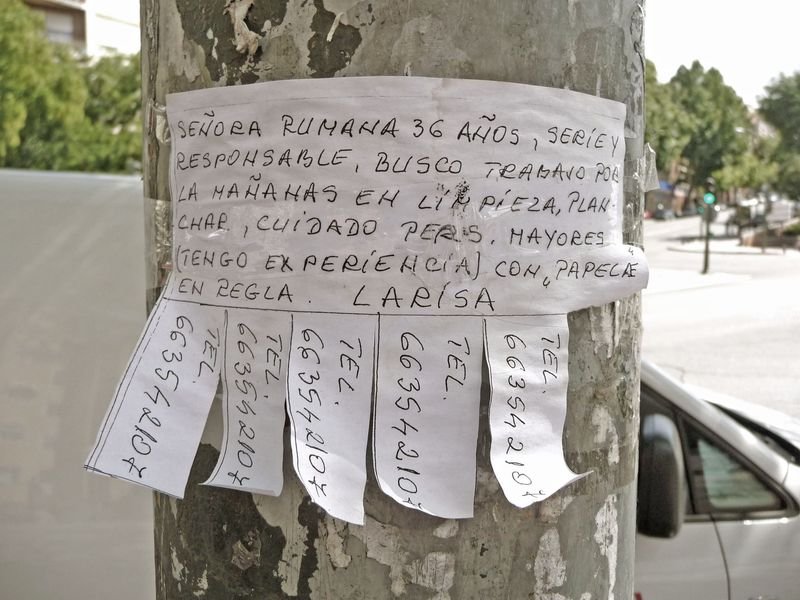 SEÑORA RUMANA 36 AÑOS, SERIE Y
RESPONSABLE, BUSCO TRABAJO POR
LA MAÑANAS EN LIMPIEZA, PLAN-
CHAR, CUIDADO PERS. MAYORES
(TENGO EXPERIENCIA) CON "PAPELE"
EN REGLA. LARISA
TEL.
663542107
TEL.
663542107
TEL.
663542107
TEL.
663542107
TEL.
663542107